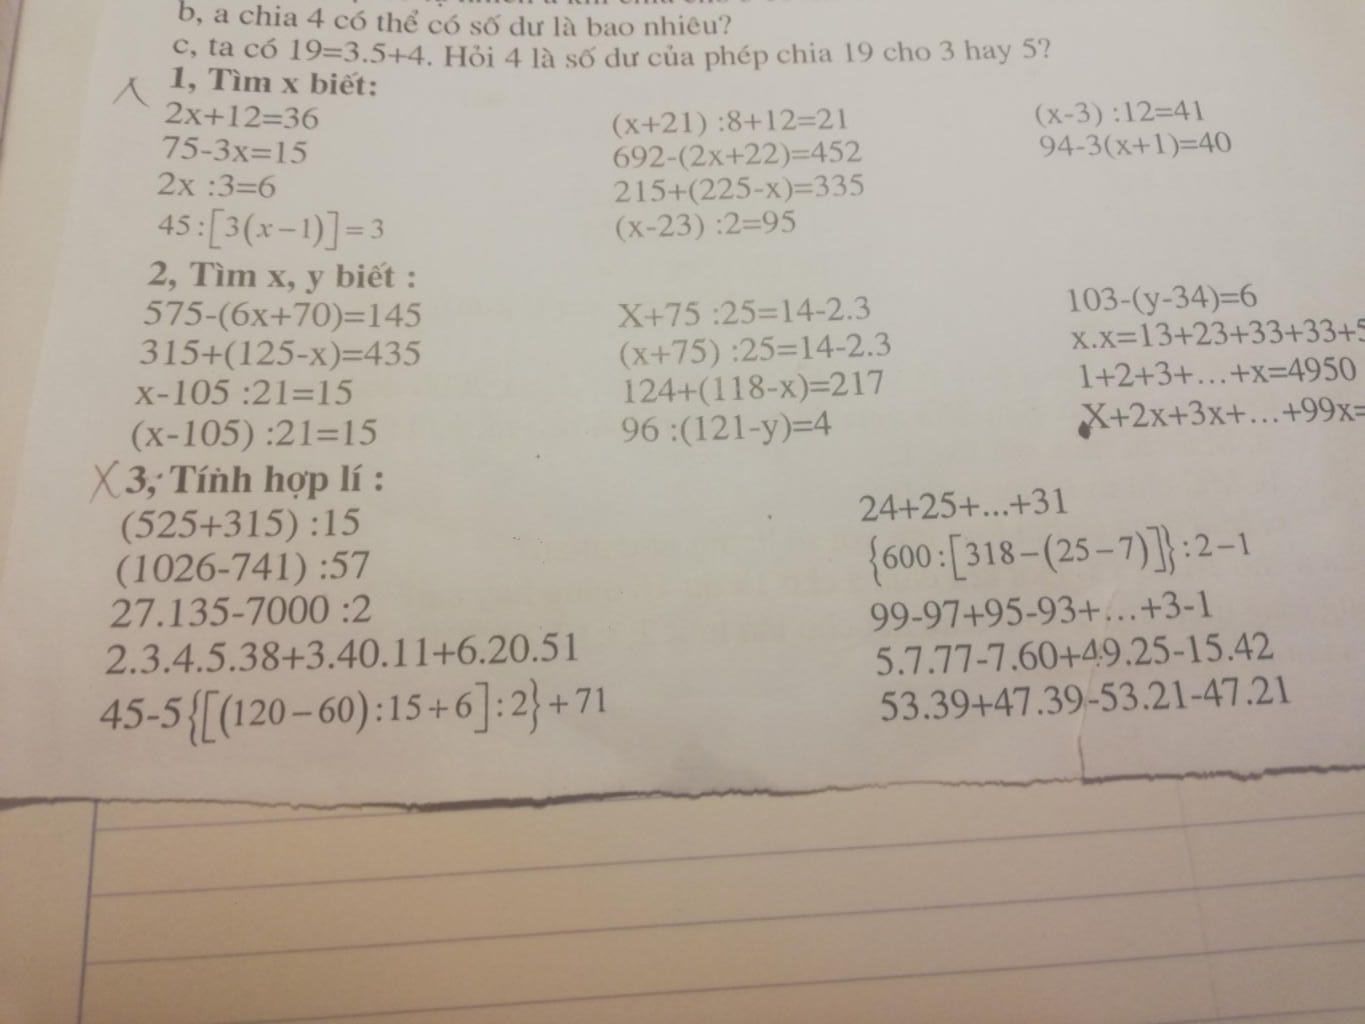 b, a chia 4 có thể có số dư là bao nhiêu?
c, ta có 19=3.5+4. Hỏi 4 là số dư của phép chia 19 cho 3 hay 5?
1, Tìm x biết:
2x+12=36 (x+21) :8+12=21 (x-3) :12=41
75-3x=15 692-(2x+22)=452 94-3(x+1)=40
2x :3=6 215+(225-x)=335
45:[3(x−1)]=3 (x-23) :2=95
2, Tìm x, y biết :
575-(6x+70)=145 X+75 :25=14-2.3 103-(y-34)=6
315+(125-x)=435 (x+75) :25=14-2.3 x.x=13+23+33+33+5
x-105 :21=15 124+(118-x)=217 1+2+3+...+x=4950
(x-105) :21=15 96 :(121-y)=4 X+2x+3x+...+99x=
X 3, Tính hợp lí :
(525+315) :15 24+25+...+31
(1026-741) :57 {600:[318−(25−7)]}:2−1
27.135-7000 :2 99-97+95-93+...+3-1
2.3.4.5.38+3.40.11+6.20.51 5.7.77-7.60+49.25-15.42
45-5{[(120−60):15+6]:2}+71 53.39+47.39-53.21-47.21